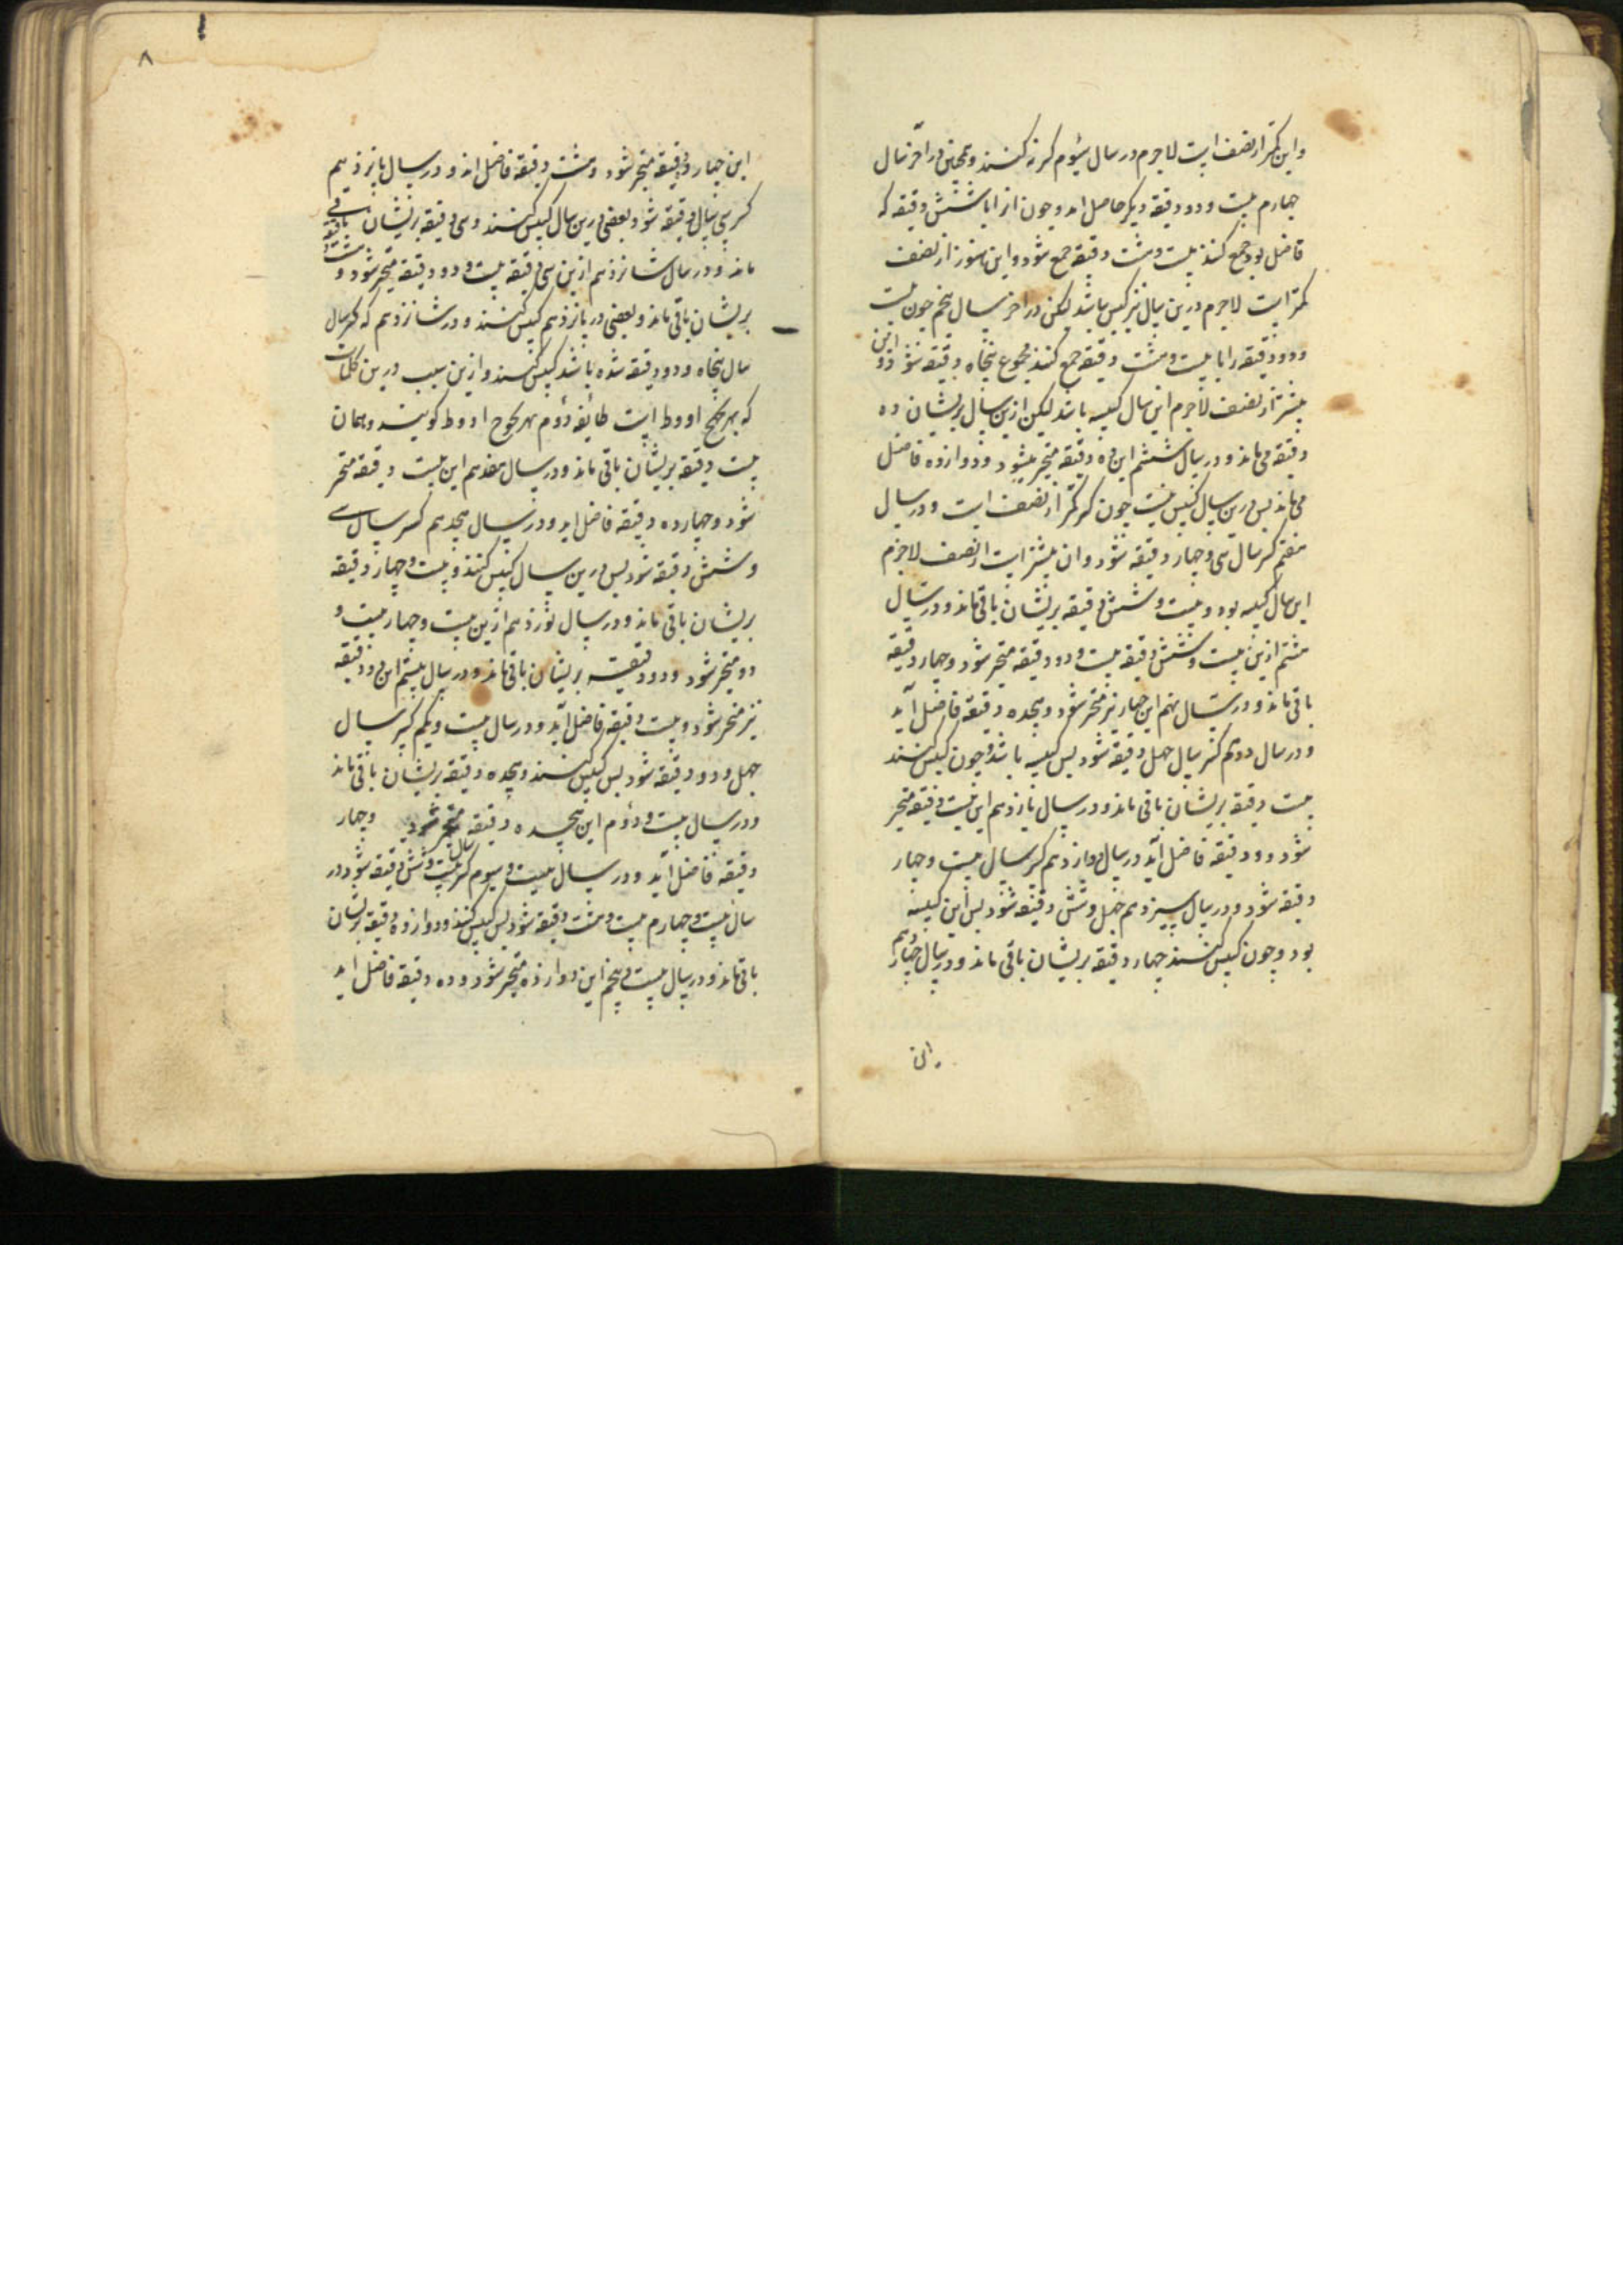 واین کمتر از نصف است لاجرم در سال سیوم کسر نه کنند و همچنین در آخر سال
چهارم بیست و دو دقیقه دیکر حاصل اید و چون انرا با شش دقیقه که
فاضل بود جمع کنند بیست و هشت دقیقه جمع شود و این هنوز از نصف
کمتر است لاجرم درین سال نیز کبس نباشد لیکن در اخر سال پنجم چون بیست
و دو دقیقه را با بیست و هشت دقیقه جمع کنند مجموع پنجاه دقیقه شود و این
بیشتر از نصف لاجرم این سال کبیسه باشد لیکن ازین سال بریشان ده
دقیقه می ماند و در سال ششم این ده دقیقه منجبر میشود و دوازده فاضل
می ماند پس درین سال کبس نیست چون کسر کمتر از نصف است و در سال
هفتم کسر سال سی و چهار دقیقه شود و ان بیشتر است از نصف لاجرم
این سال کبیسه بود و بیست و شش دقیقه بریشان باقی ماند و در سال
هشتم ازین بیست و شش دقیقه بیست و دو دقیقه منجبر شود و چهار دقیقه
باقی ماند و در سال نهم این چهار نیز منجبر شود و هجده دقیقه فاضل آید
و در سال دهم کسر سال چهل دقیقه شود پس کبیسه باشد و چون کبس کنند
بیست دقیقه بریشان باقی ماند و در سال یازدهم این بیست دقیقه منجبر
شود و دو دقیقه فاضل آید در سال دوازدهم کسر سال بیست و چهار
دقیقه شود و در سال سیزدهم چهل و شش دقیقه شود پس این کبیسه
بود و چون کبس کنند چهار دقیقه بریشان باقی ماند و در سال چهاردهم
۸
این چهار دقیقه منجبر شود و هشت دقیقه فاضل اند و در سال پانزدهم
کسر سی سال دقیقه شود بعضی درین سال کبس کنند و سی دقیقه بریشان باقی
ماند و در سال شانزدهم ازین سی دقیقه بیست و دو دقیقه منجبر شود و هشت دقیقه
بریشان باقی ماند و بعضی در پانزدهم کبس نکنند و در شانزدهم که کسر سال
سال پنجاه و دو دقیقه شده باشد کبس کنند و ازین سبب درین کلمات
که بهزیجح ادوط است طایفه دوم بهزیجوح ادوط کویند و همان
بیست دقیقه بریشان باقی ماند و در سال هفدهم این بیست دقیقه منجبر
شود و چهارده دقیقه فاضل اید و در سال هجدهم کسر سال سی
و شش دقیقه شود پس درین سال کبس کنند و بیست و چهار دقیقه
بریشان باقی ماند و در سال نوزدهم ازین بیست و چهار بیست و
دو منجبر شود و دو دقیقه بریشان باقی ماند و در سال بیستم این دو دقیقه
نیز منجبر شود و بیست دقیقه فاضل آید و در سال بیست و یکم کسر سال
چهل و دو دقیقه شود پس کبس کنند و هجده دقیقه بریشان باقی ماند
و در سال بیست و دوم این هجده دقیقه منجبر شود و چهار
دقیقه فاضل آید و در سال بیست و سیوم کسر سال بیست و شش دقیقه شود در
سال بیست و چهارم بیست و هشت دقیقه شود پس کبس کنند و دوازده دقیقه بریشان
باقی ماند و در سال بیست و پنجم این دوازده منجبر شود و ده دقیقه فاضل اید